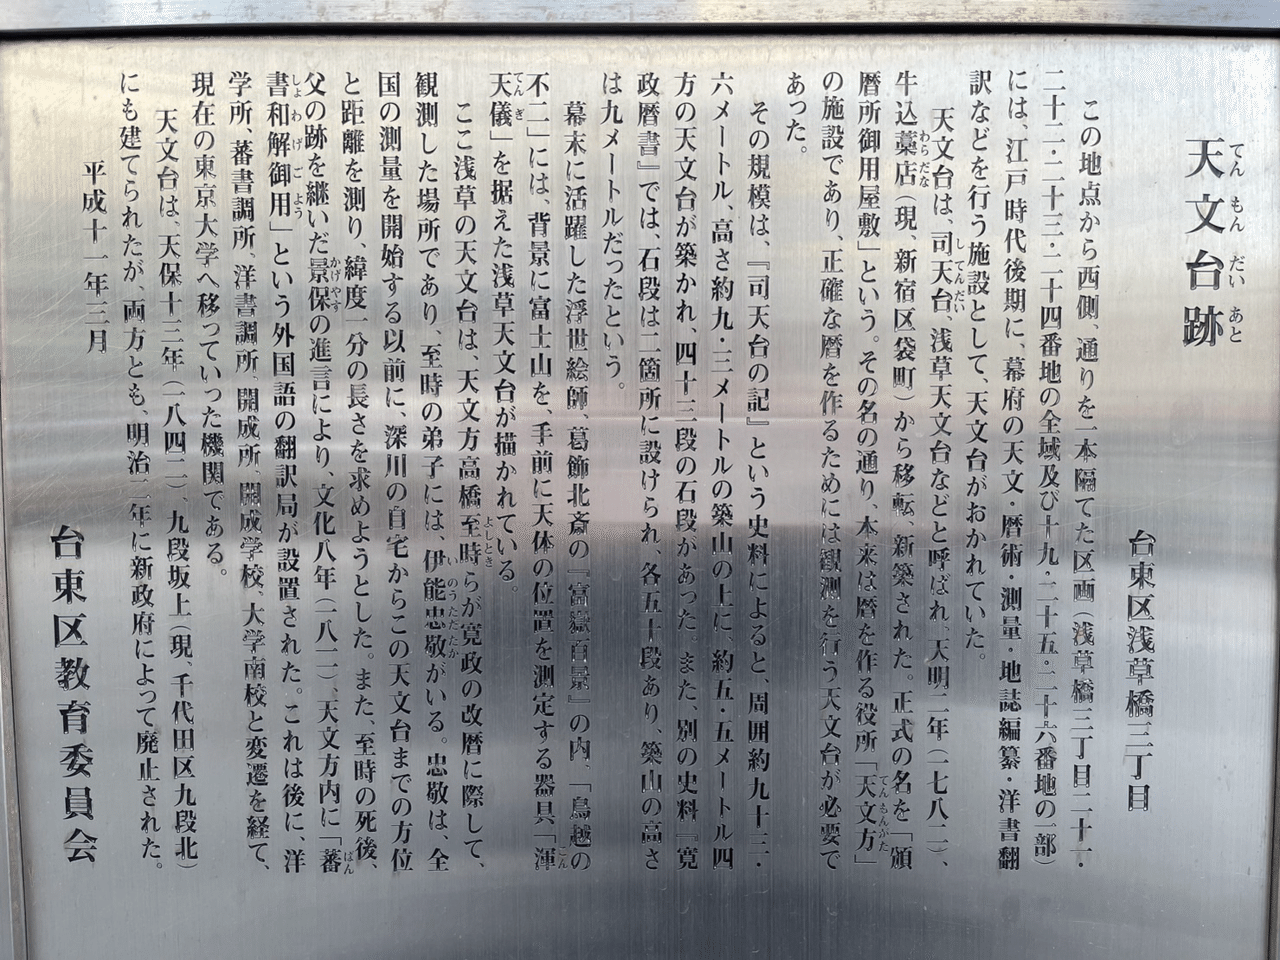 天文台跡
台東区浅草橋三丁目
この地点から西側、通りを一本隔てた区画(浅草橋三丁目二十一・
二十二・二十三・二十四番地の全域及び十九・二十五・二十六番地の一部)
には、江戸時代後期に、幕府の天文・暦術・測量・地誌編纂・洋書翻
訳などを行う施設として、天文台がおかれていた。
天文台は、司天台、浅草天文台などと呼ばれ、天明二年(一七八二)、
牛込藁店(現、新宿区袋町)から移転、新築された。正式の名を「頒
暦所御用屋敷」という。その名の通り、本来は暦を作る役所「天文方」
の施設であり、正確な暦を作るためには観測を行う天文台が必要で
あった。
その規模は、『司天台の記』という史料によると、周囲約九十三・
六メートル、高さ約九・三メートルの築山の上に、約五・五メートル四
方の天文台が築かれ、四十三段の石段があった。また、別の史料『寛
政暦書』では、石段は二箇所に設けられ、各五十段あり、築山の高さ
は九メートルだったという。
幕末に活躍した浮世絵師、葛飾北斎の『富嶽百景』の内、「鳥越の
不二」には、背景に富士山を、手前に天体の位置を測定する器具「渾
天儀」を据えた浅草天文台が描かれている。
ここ浅草の天文台は、天文方高橋至時らが寛政の改暦に際して、
観測した場所であり、至時の弟子には、伊能忠敬がいる。忠敬は、全
国の測量を開始する以前に、深川の自宅からこの天文台までの方位
と距離を測り、緯度一分の長さを求めようとした。また、至時の死後、
父の跡を継いだ景保の進言により、文化八年(一八一一)、天文方内に「蕃
書和解御用」という外国語の翻訳局が設置された。これは後に、洋
学所、蕃書調所、洋書調所、開成所、開成学校、大学南校と変遷を経て、
現在の東京大学へ移っていった機関である。
天文台は、天保十三年(一八四二)、九段坂上(現、千代田区九段北)
にも建てられたが、両方とも、明治二年に新政府によって廃止された。
平成十一年三月
台東区教育委員会